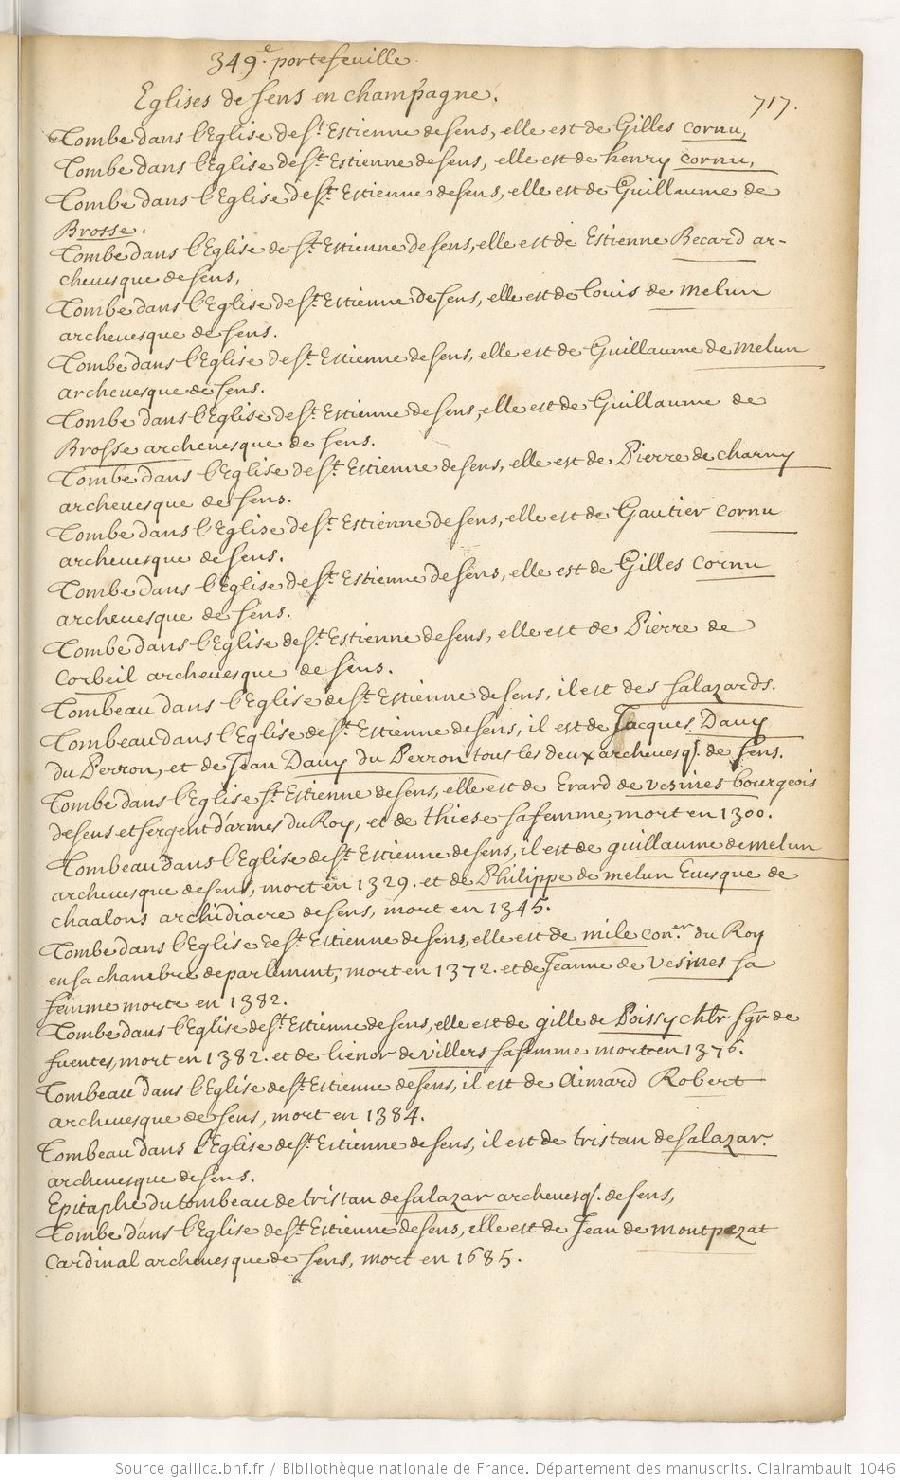 349.e portefeuille.
717.
Eglises de sens en champagne.
Tombe dans l'Eglise de St. Estienne de sens, elle est de Gilles cornu,
Tombe dans l'Eglise de St. Estienne de sens, elle est de henry cornu,
Tombe dans l'Eglise de St. Estienne de sens, elle est de Guillaume de
Brosse.
Tombe dans l'Eglise de St. Estienne de sens, elle est de Estienne Becard ar-
cheuesque de sens,
Tombe dans l'Eglise de St. Estienne de sens, elle est de Louis de Melun
archeuesque de sens.
Tombe dans l'Eglise de St. Estienne de sens, elle est de Guillaume de Melun
archeuesque de sens.
Tombe dans l'Eglise de St. Estienne de sens, elle est de Guillaume de
Brosse archeuesque de sens.
Tombe dans l'Eglise de St. Estienne de sens, elle est de Pierre de charny
archeuesque de sens.
Tombe dans l'Eglise de St. Estienne de sens, elle est de Gautier cornu
archeuesque de sens.
Tombe dans l'Eglise de St. Estienne de sens, elle est de Gilles cornu
archeuesque de sens.
Tombe dans l'Eglise de St. Estienne de sens, elle est de Pierre de
Corbeil archeuesque de sens.
Tombeau dans l'Eglise de St. Estienne de sens, il est des salazards.
Tombeau dans l'Eglise de St. Estienne de sens, il est de Jacques Dauy
du Perron, et de Jean Dauy du Perron tous les deux archeuesq. de sens.
Tombe dans l'Eglise St. Estienne de sens, elle est de Erard de vesines bourgeois
de sens et sergent d'armes du Roy, et de thiese sa femme, mort en 1300.
Tombeau dans l'Eglise de St. Estienne de sens, il est de guillaume de melun
archeuesque de sens, mort en 1329. et de Philippe de melun Euesque de
chaalons archidiacre de sens, mort en 1345.
Tombe dans l'Eglise de St. Estienne de sens, elle est de mile con.er du Roy
en sa chambre de parlement, mort en 1372. et de Jeanne de Vesines sa
femme morte en 1382.
Tombe dans l'Eglise de St. Estienne de sens, elle est de gille de Poissy chlr sgr de
fuentes, mort en 1382. et de lienor de villers sa femme morte en 1376.
Tombeau dans l'Eglise de St. Estienne de sens, il est de Aimard Robert
archeuesque de sens, mort en 1384.
Tombeau dans l'Eglise de St. Estienne de sens, il est de tristan de salazar.
archeuesque de sens.
Epitaphe du tombeau de tristan de salazar archeuesq. de sens,
Tombe dans l'Eglise de St. Estienne de sens, elle est de Jean de montpezat
Cardinal archeuesque de sens, mort en 1685.
Source gallica.bnf.fr / Bibliothèque nationale de France. Département des manuscrits. Clairambault 1046